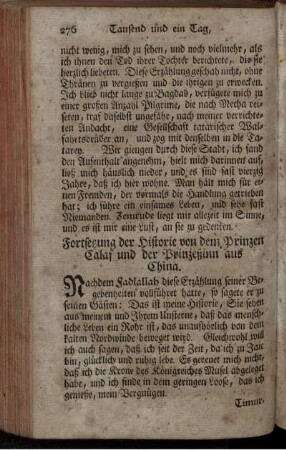 276 Tausend und ein Tag,
nicht wenig, mich zu sehen, und noch vielmehr, als
ich ihnen den Tod ihrer Tochter berichtete, die sie
herzlich liebeten. Diese Erzählung geschah nicht, ohne
Thränen zu vergießen und die ihrigen zu erwecken.
Ich blieb nicht lange zu Bagdad, verfügete mich zu
einer großen Anzahl Pilgrime, die nach Mecha rei-
seten, traf daselbst ungefähr, nach meiner verrichte-
ten Andacht, eine Gesellschaft tatarischer Wal-
fahrtsbrüder an, und zog mit denselben in die Ta-
tarey. Wir giengen durch diese Stadt, ich fand
den Aufenthalt angenehm, hielt mich darinnen auf,
ließ mich häuslich nieder, und es sind fast vierzig
Jahre, daß ich hier wohne. Man hält mich für ei-
nen Fremden, der vormals die Handlung getrieben
hat; ich führe ein einsames Leben, und sehe fast
Niemanden. Zemrude liegt mir allezeit im Sinne,
und es ist mir eine Lust, an sie zu gedenken.
Fortsetzung der Historie von dem Prinzen
Calaf und der Prinzeßinn aus
China.
Nachdem Fadlallah diese Erzählung seiner Be-
gebenheiten vollführet hatte, so sagete er zu
seinen Gästen: Das ist meine Historie, Sie sehen
aus meinem und Ihrem Unsterne, daß das mensch-
liche Leben ein Rohr ist, das unaufhörlich von dem
kalten Nordwinde beweget wird. Gleichwohl will
ich auch sagen, daß ich seit der Zeit, da ich zu Jaic
bin, glücklich und ruhig lebe. Es gereuet mich nicht,
daß ich die Krone des Königreiches Musel abgeleget
habe, und ich finde in dem geringen Loose, das ich
genieße, mein Vergnügen.
Timur-